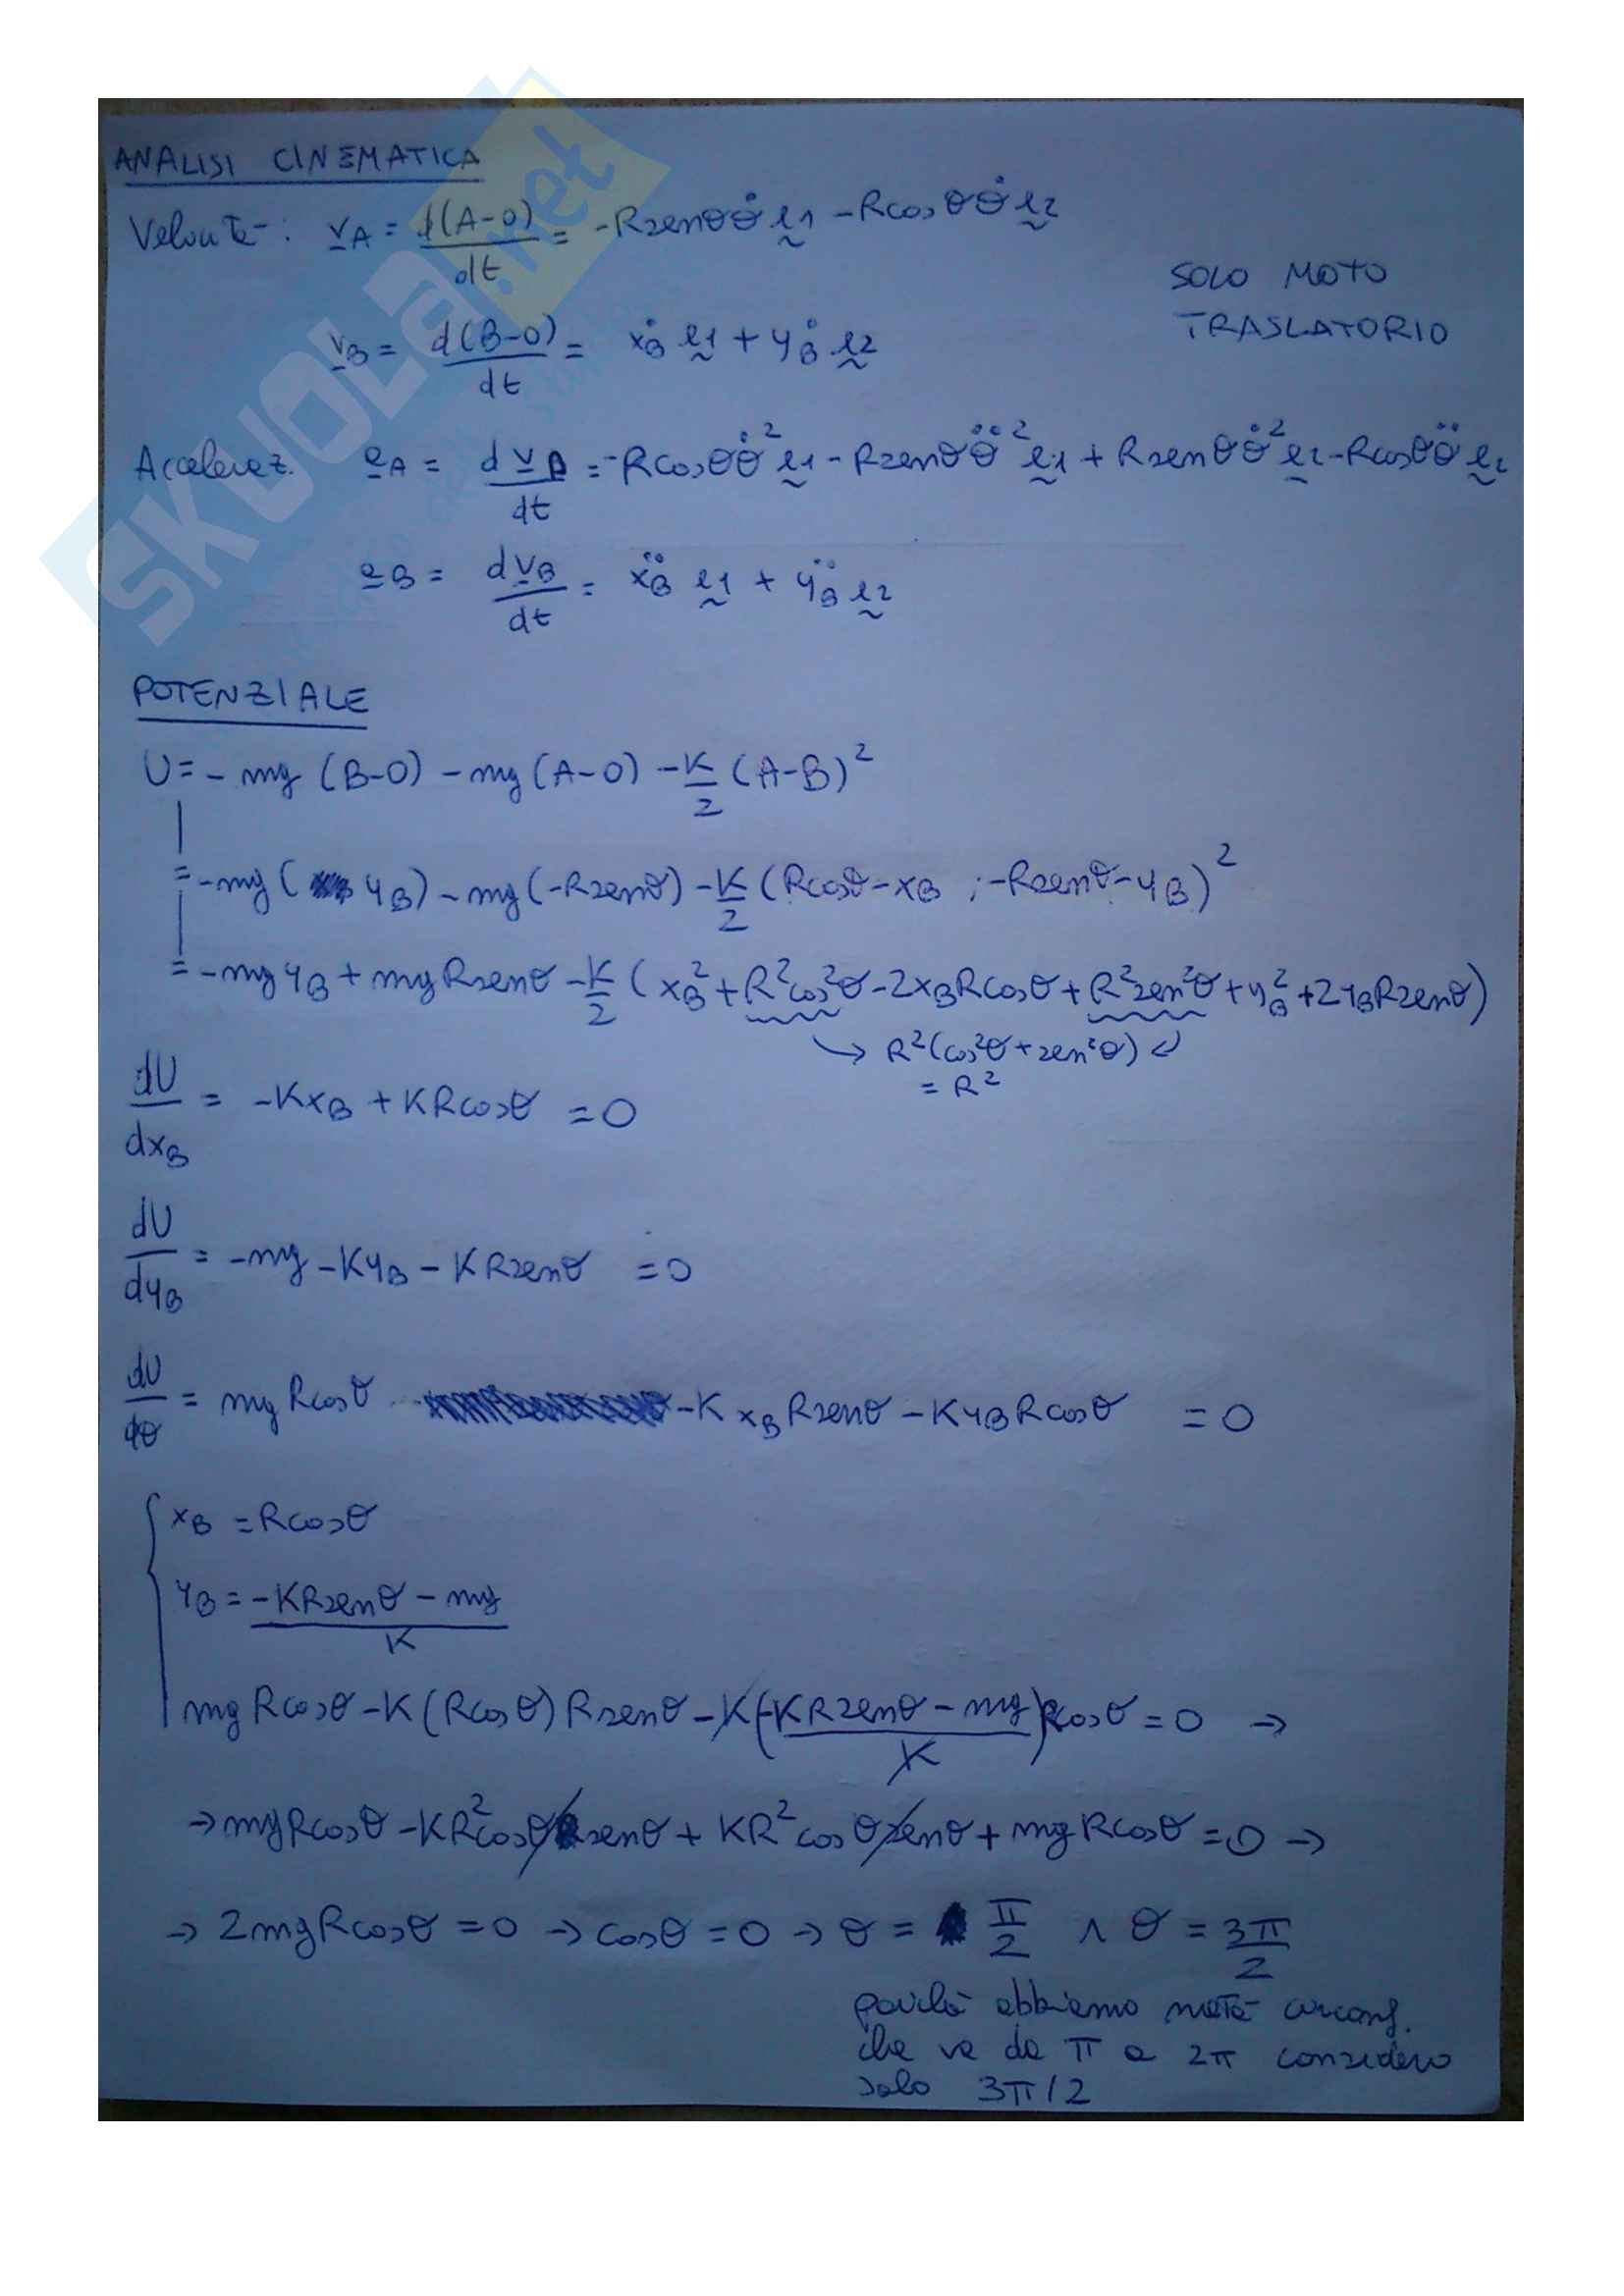 ANALISI CINEMATICA
Velocità: v_A = d(A-O)/dt = -Rsenθθ̇ e1 - Rcosθθ̇ e2
SOLO MOTO
TRASLATORIO
v_B = d(B-O)/dt = ẋ_B e1 + ẏ_B e2
Acceleraz. a_A = dv_A/dt = -Rcosθθ̇² e1 - Rsenθθ̈² e1 + Rsenθθ̇² e2 - Rcosθθ̈ e2
a_B = dv_B/dt = ẍ_B e1 + ÿ_B e2
POTENZIALE
U = - mg (B-O) - mg (A-O) - K/2 (A-B)²
= -mg ( y_B) - mg (-Rsenθ) - K/2 (Rcosθ - x_B ; -Rsenθ - y_B)²
= -mg y_B + mgRsenθ - K/2 (x_B² + R²cos²θ - 2x_BRcosθ + R²sen²θ + y_B² + 2y_BRsenθ)
→ R²(cos²θ + sen²θ)
= R²
dU/dx_B = -Kx_B + KRcosθ = 0
dU/dy_B = -mg - Ky_B - KRsenθ = 0
dU/dθ = mgRcosθ - Kx_BRsenθ - Ky_BRcosθ = 0
x_B = Rcosθ
y_B = (-KRsenθ - mg)/K
mgRcosθ - K(Rcosθ)Rsenθ - K((-KRsenθ - mg)/K)Rcosθ = 0 →
→ mgRcosθ - KR²cosθsenθ + KR²cosθsenθ + mgRcosθ = 0 →
→ 2mgRcosθ = 0 → cosθ = 0 → θ = π/2 ∧ θ = 3π/2
poiché abbiamo metà circonf.
che va da π a 2π considero
solo 3π/2
SKUOLA.net